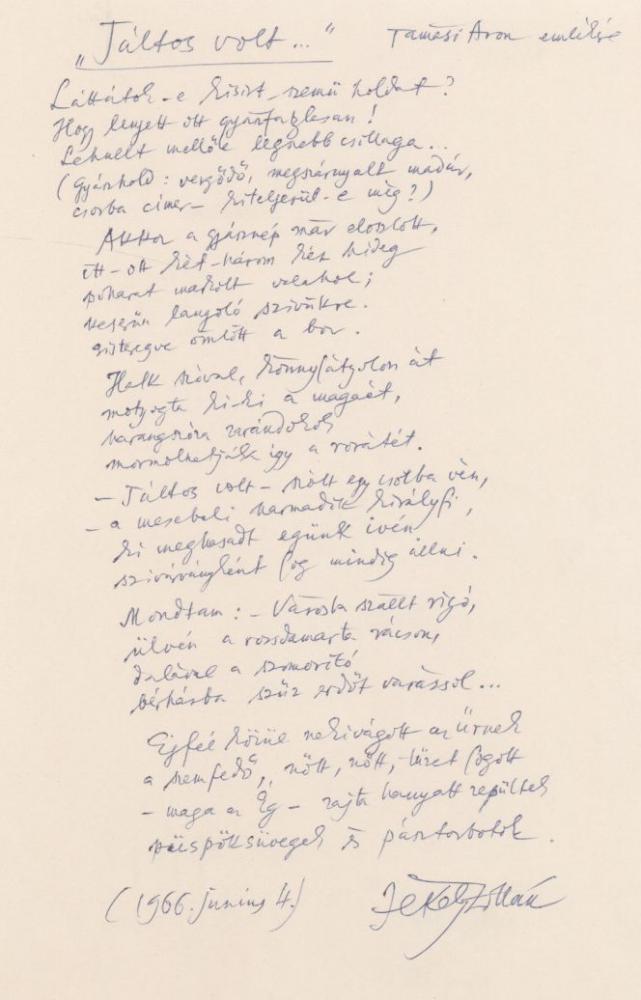 „Táltos volt..."
Tamási Áron emlékére
Láttátok-e kisírt szemü holdat?
Hogy lengett ott gyászfáklyásan!
Lehullt mellőle legszebb csillaga...
(Gyászhold: vergődő, megszárnyalt madár,
csorba címer – kiteljesül-e még?)
Akkor a gyásznép már eloszlott,
itt-ott két-három kéz hideg
poharat markolt valahol;
keserün lángoló szivükre
sisteregve ömlött a bor.
Halk szóval, könnyfátyolon át
motyogta ki-ki a magáét,
harangszóra zarándokok
mormolhatják így a rorátét.
– Táltos volt – szólt egy csotba vén,
– a mesebeli harmadik királyfi,
ki meghasadt egünk ivén
szivárványként fog mindig állni.
Mondtam: – Városba szállt rigó,
ülvén a rozsdamarta rácson,
dalával a szomorító
bérházba szüz erdőt varázsol...
Éjfél körül nekivágott az ürnek
a szemfedő, nőtt, nőtt, – tüzet fogott
– maga az Ég – rajta hanyatt repültek
püspöksüvegek és pásztorbotok.
(1966. junius 4.)
Jékely Zoltán